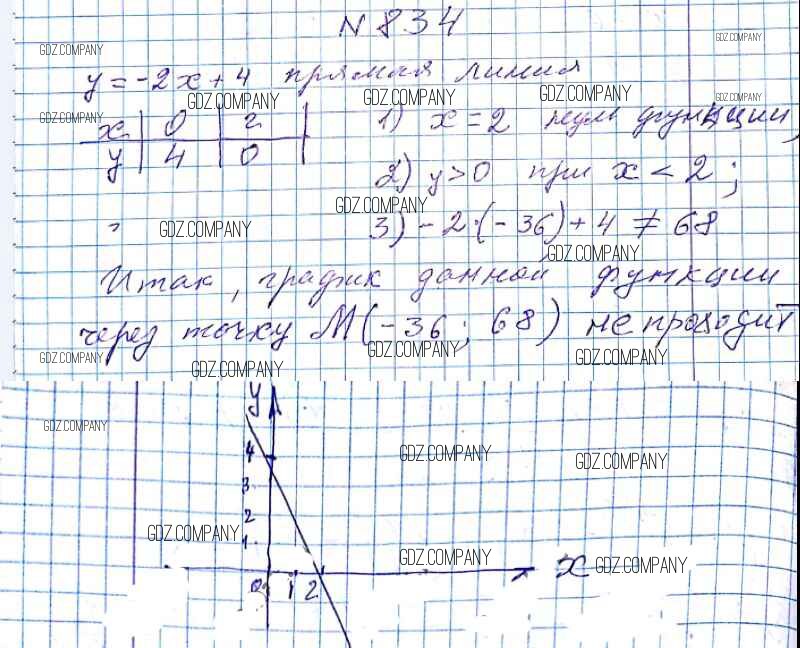 N 834
GDZ.COMPANY GDZ.COMPANY
y = -2x + 4 прямая линия
GDZ.COMPANY GDZ.COMPANY GDZ.COMPANY GDZ.COMPANY GDZ.COMPANY
x | 0 | 2 1) x = 2 нуль функции,
y | 4 | 0 2) y > 0 при x < 2;
GDZ.COMPANY GDZ.COMPANY
3) -2·(-36) + 4 ≠ 68
GDZ.COMPANY
Итак, график данной функции
через точку M(-36; 68) не проходит
GDZ.COMPANY GDZ.COMPANY GDZ.COMPANY GDZ.COMPANY
y
GDZ.COMPANY
4 GDZ.COMPANY GDZ.COMPANY
3
2
GDZ.COMPANY
1
GDZ.COMPANY
x GDZ.COMPANY
0 1 2